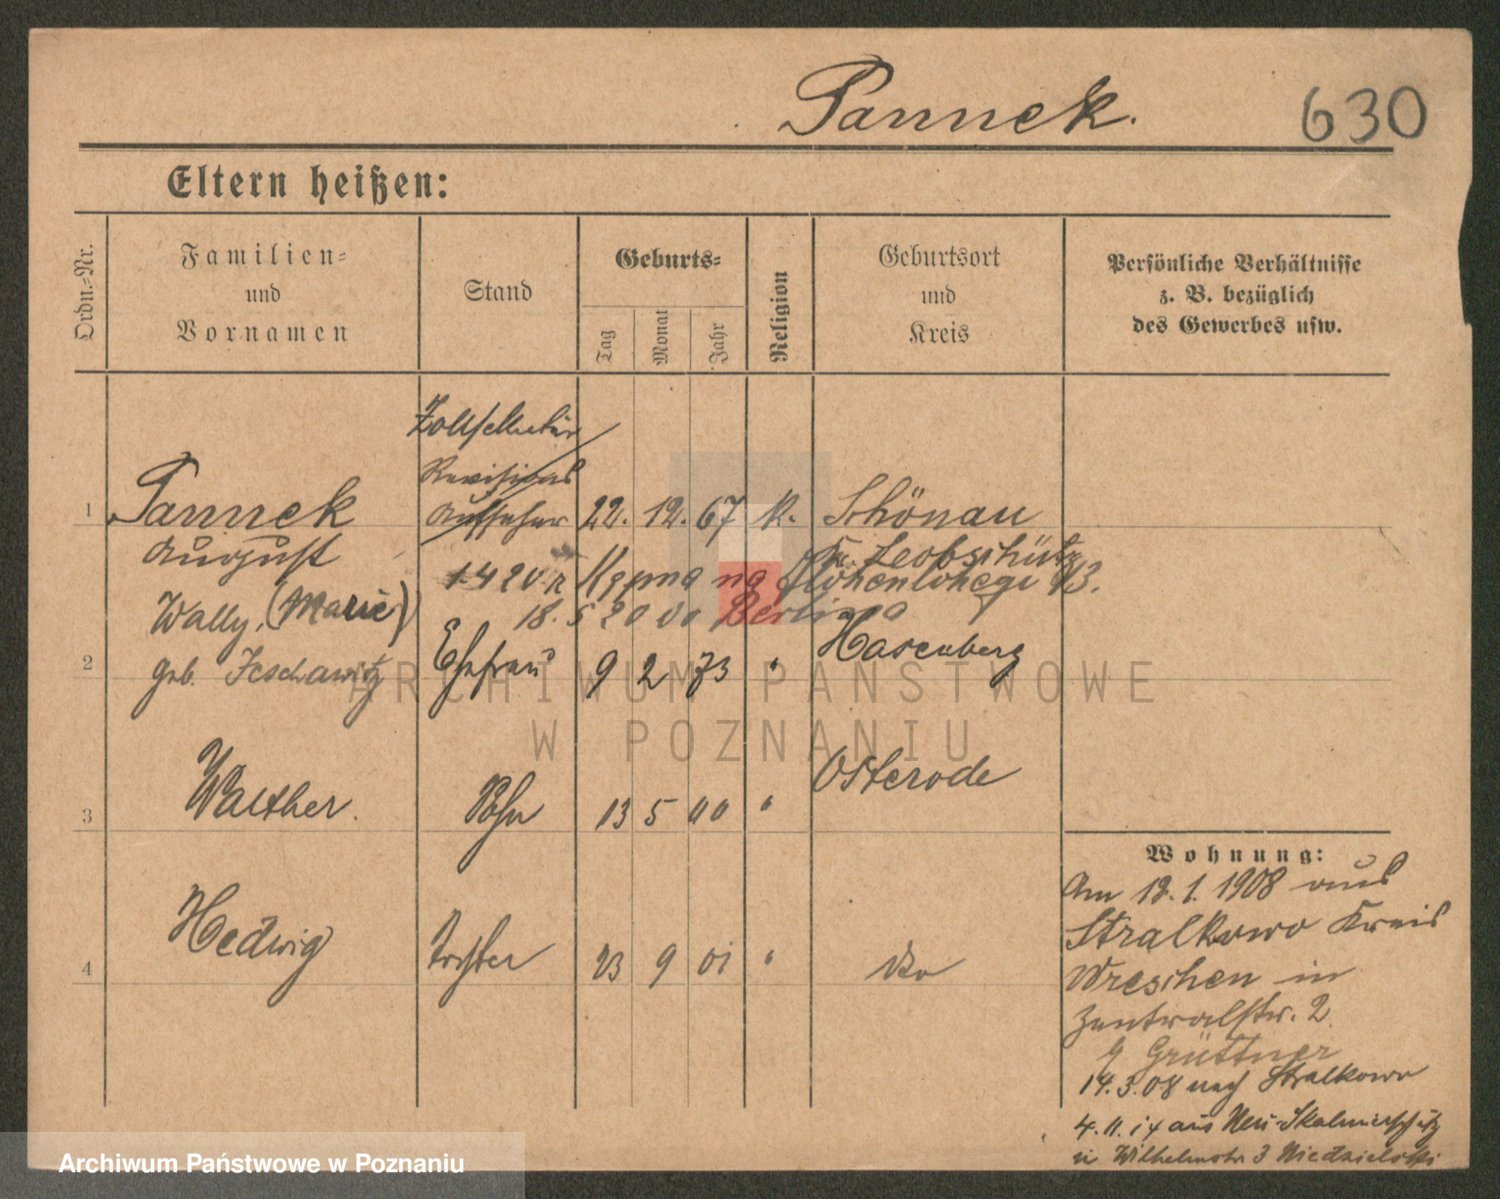 Pannek.
630
Eltern heißen:
Ordn.-Nr.
Familien-
und
Vornamen
Stand
Geburts-
Tag
Monat
Jahr
Religion
Geburtsort
und
Kreis
Persönliche Verhältnisse
z. B. bezüglich
des Gewerbes usw.
Zollsekretär
Revisions
1 Pannek Aufseher 22. 12. 67 k. Schönau
August
Kr. Leobschütz
1.4 20 Hohenlohege 13.
Wally, (Marie)
18. 5 20 Berlin
2 geb. Jeschawitz Ehefrau 9 2 73 " Hasenberg
3 Walther. Sohn 13 5 00 " Osterode
4 Hedwig Tochter 23 9 01 " dto
Wohnung:
Am 12. 1. 1908 aus
Stralkowo Kreis
Wreschen in
Zentralstr. 2.
Grüttner
14. 3. 08 nach Stralkowo
4. 11. 14 aus Neu-Skalmierschütz
in Wilhelmstr 3 Niedzielski
ARCHIWUM PAŃSTWOWE
W POZNANIU
Archiwum Państwowe w Poznaniu